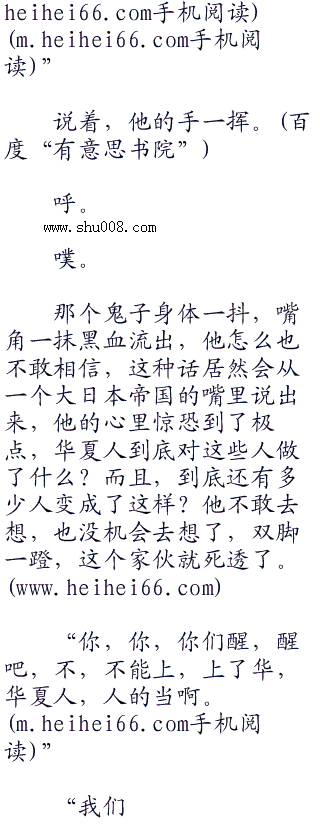 heihei66.com手机阅读)
(m.heihei66.com手机阅
读)”
说着，他的手一挥。(百
度“有意思书院”)
呼。
www.shu008.com
噗。
那个鬼子身体一抖，嘴
角一抹黑血流出，他怎么也
不敢相信，这种话居然会从
一个大日本帝国的嘴里说出
来，他的心里惊恐到了极
点，华夏人到底对这些人做
了什么？而且，到底还有多
少人变成了这样？他不敢去
想，也没机会去想了，双脚
一蹬，这个家伙就死透了。
(www.heihei66.com)
“你，你，你们醒，醒
吧，不，不能上，上了华，
华夏人，人的当啊。
(m.heihei66.com手机阅
读)”
“我们